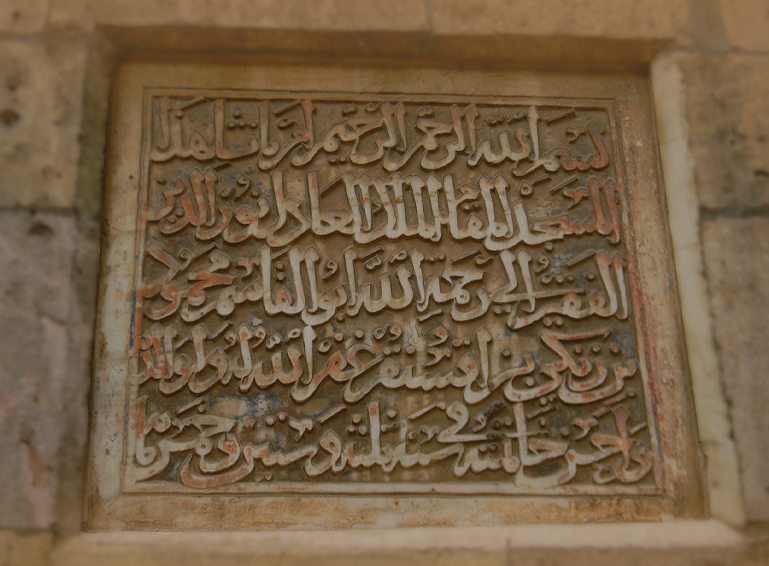 بسم الله الرحمن الرحيم امر بانشا هذا
المسجد المقام الملك العادل نور الدين
الفقير الى رحمة الله ابو القاسم محمود
بن زنكي بن اقسنقر غفر الله له ولوالديه
واحسن خاتمته في سنة ثلث وستين وخمس مائة